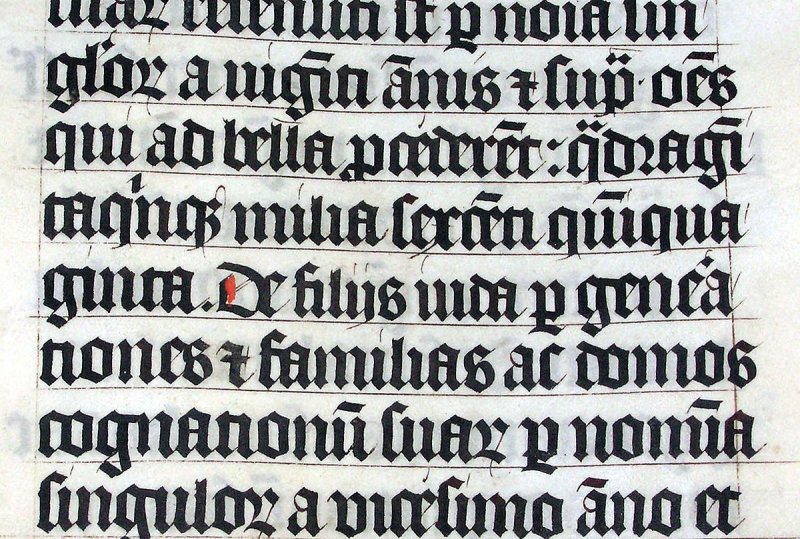 suaꝝ recensiti sūt ꝑ noīa sin
gloꝝ a uigīti ānis ⁊ sup̄· oēs
qui ad bella ꝓcederēt: q̄dragīta
taq̇nqꝫ milia sexcēti quīqua
ginta. De filijs iuda ꝑ gen̄ca
tiones ⁊ familias ac domos
cognationū suaꝝ ꝑ nomīa
singuloꝝ a vicesimo āno et